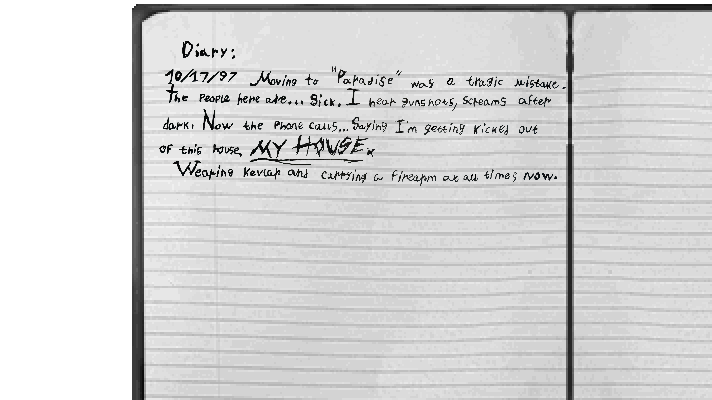 Diary:
10/17/97 Moving to "Paradise" was a tragic mistake.
The people here are... Sick. I hear gunshots, screams after
dark. Now the phone calls... Saying I'm getting kicked out
of this house, MY HOUSE.
Wearing kevlar and carrying a firearm at all times now.